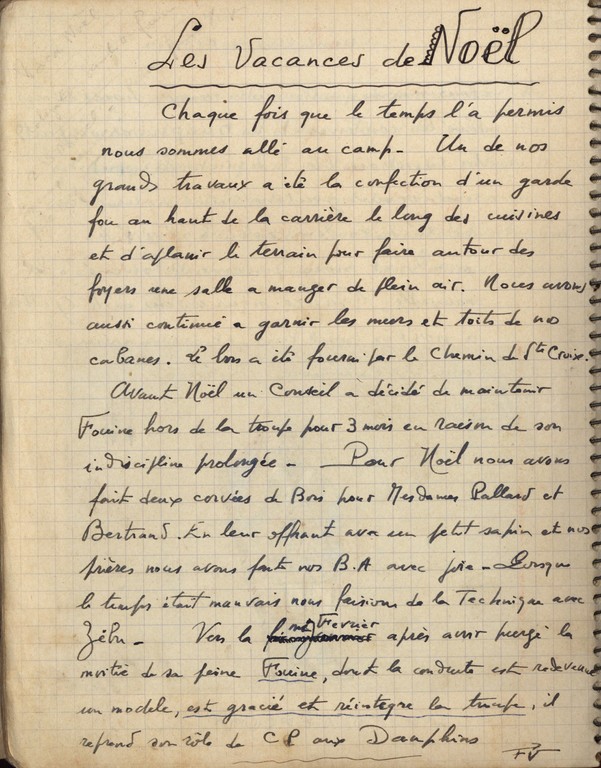 Les Vacances de Noël
Chaque fois que le temps l'a permis
nous sommes allé au camp - Un de nos
grands travaux a été la confection d'un garde
fou au haut de la carrière le long des cuisines
et d'aplanir le terrain pour faire autour des
foyers une salle a manger de plein air. Nous avons
aussi continué a garnir les murs et toits de nos
cabanes. Le bois a été fourni par le Chemin de Ste Croix.
Avant Noël un Conseil a décidé de maintenir
Fouine hors de la troupe pour 3 mois en raison de son
indiscipline prolongée - Pour Noël nous avons
fait deux corvées de Bois pour Mesdames Pallard et
Bertrand. En leur offrant avec un petit sapin et nos
prières nous avons fait nos B.A avec joie - Lorsque
le temps était mauvais nous faisions de la Technique avec
Zébu - Vers la mi Fevrier après avoir purgé la
moitié de sa peine Fouine, dont la conduite est redevenue
un modèle, est gracié et réintègre la troupe, il
reprend son rôle de CP aux Dauphins